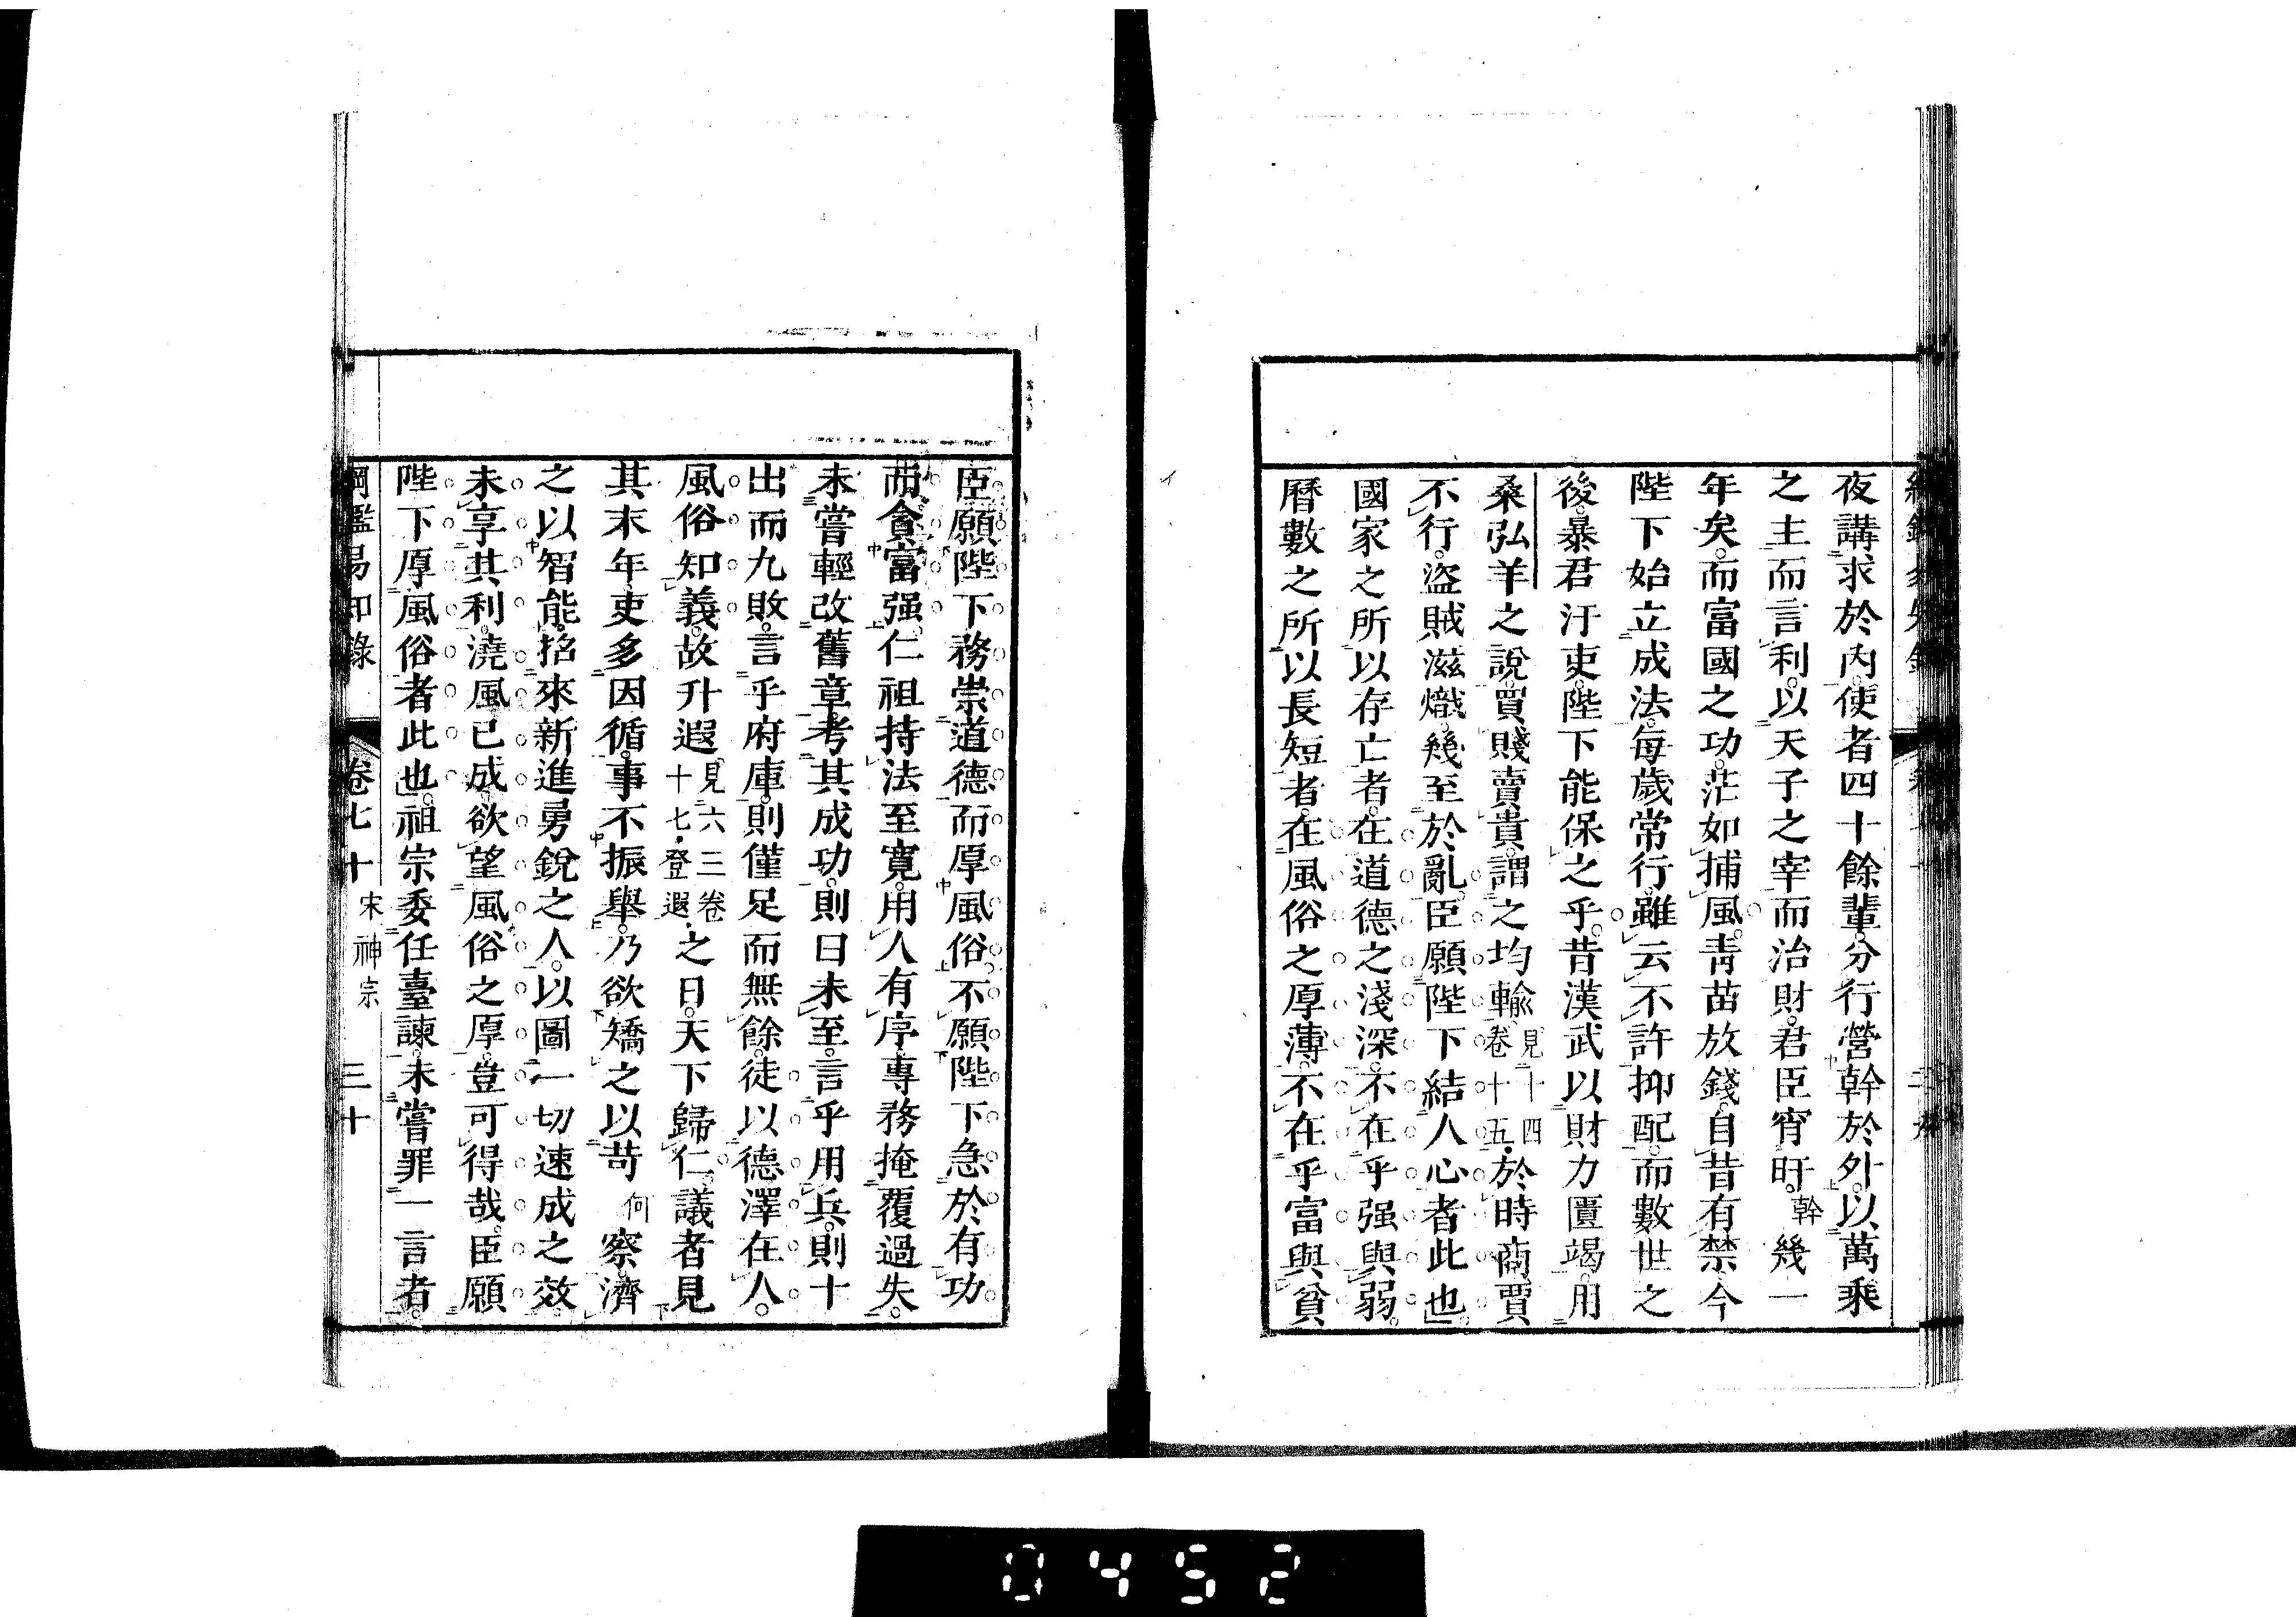 夜講求於內使者四十餘輩分行營幹於外以萬乘
之主而言利以天子之宰而治財君臣宵旰幹幾一
年矣而富國之功茫如捕風青苗放錢自昔有禁今
陛下始立成法每歲常行雖云不許抑配而數世之
後暴君汙吏陛下能保之乎昔漢武以財力匱竭用
桑弘羊之說買賤賣貴謂之均輸見十四卷十五於時商賈
不行盜賊滋熾幾至於亂臣願陛下結人心者此也
國家之所以存亡者在道德之淺深不在乎强與弱
曆數之所以長短者在風俗之厚薄不在乎富與貧
臣願陛下務崇道德而厚風俗不願陛下急於有功
而貪富强仁祖持法至寬用人有序專務掩覆過失
未嘗輕改舊章考其成功則曰未至言乎用兵則十
出而九敗言乎府庫則僅足而無餘徒以德澤在人
風俗知義故升遐見六三卷十七登遐之日天下歸仁議者見
其末年吏多因循事不振舉乃欲矯之以苛何察濟
之以智能招來新進勇銳之人以圖一切速成之效
未享其利澆風已成欲望風俗之厚豈可得哉臣願
陛下厚風俗者此也祖宗委任臺諫未嘗罪一言者
綱鑑易知錄 卷七十 宋神宗 三十
0452